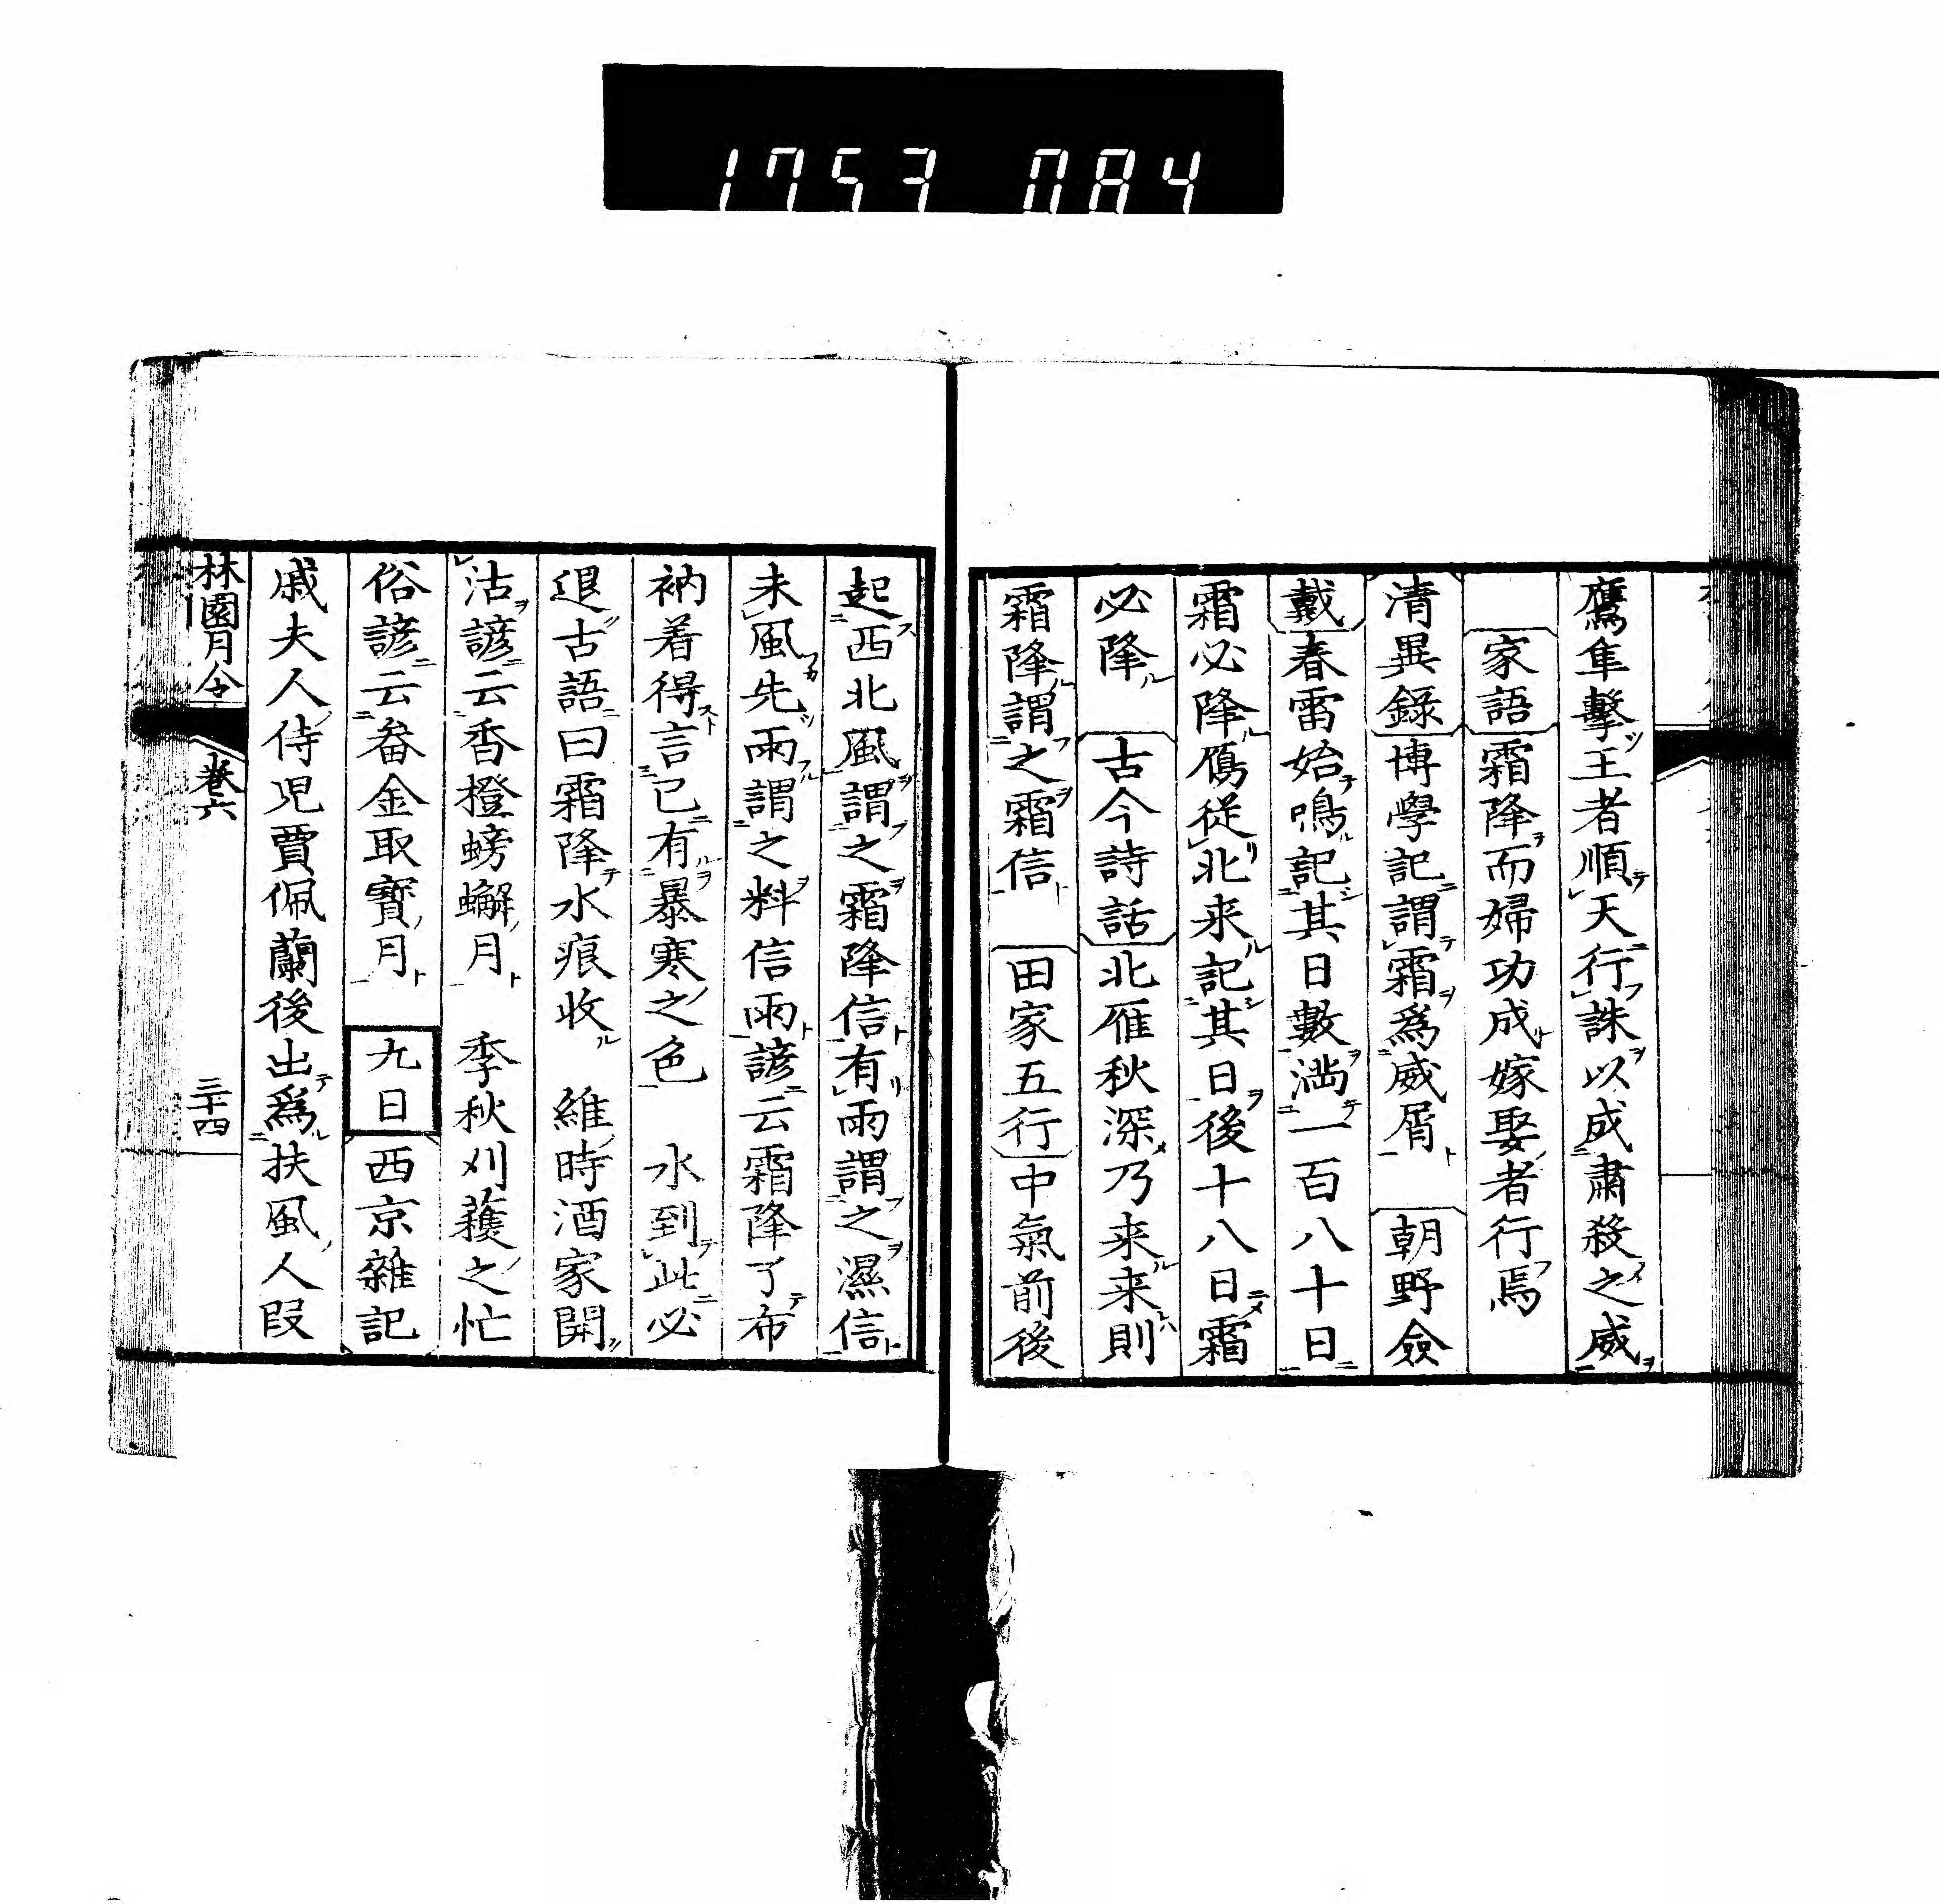 1753 084
鷹隼擊王者順天行誅以成肅殺之威
家語霜降而婦功成嫁娶者行焉
清異錄博學記謂霜爲威屑　朝野僉
戴春雷始鳴記其日數滿一百八十日
霜必降鴈從北来記其日後十八日霜
必降　古今詩話北雁秋深乃来来則
霜降謂之霜信　田家五行中氣前後
起西北風謂之霜降信有雨謂之濕信
未風先雨謂之料信雨諺云霜降了布
衲着得言已有暴寒之色　水到此必
退古語曰霜降水痕收　維時酒家開
沽諺云香橙螃蠏月　季秋刈蔓之忙
俗諺云畚金取寶月　九日西京雜記
戚夫人侍児賈佩蘭後出爲扶風人段
林園月令　卷六　三十四